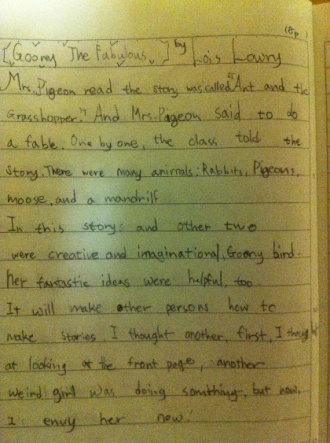 18p
{Gooney The fabulous} by Lois Lowry
Mrs. Pigeon read the story was called "Ant and the
Grasshopper." And Mrs. Pigeon said to do
a fable. One by one, the class told the
story. There were many animals: Rabbits, Pigeons,
moose, and a mandrill
In this storys and other two
were creative and imaginational, Goony bird.
her fantastic ideas were helpful, too.
It will make other persons how to
make stories. I thought another, first, I
at looking at the front page, another
weird girl was doing something, but now.
I envy her now!